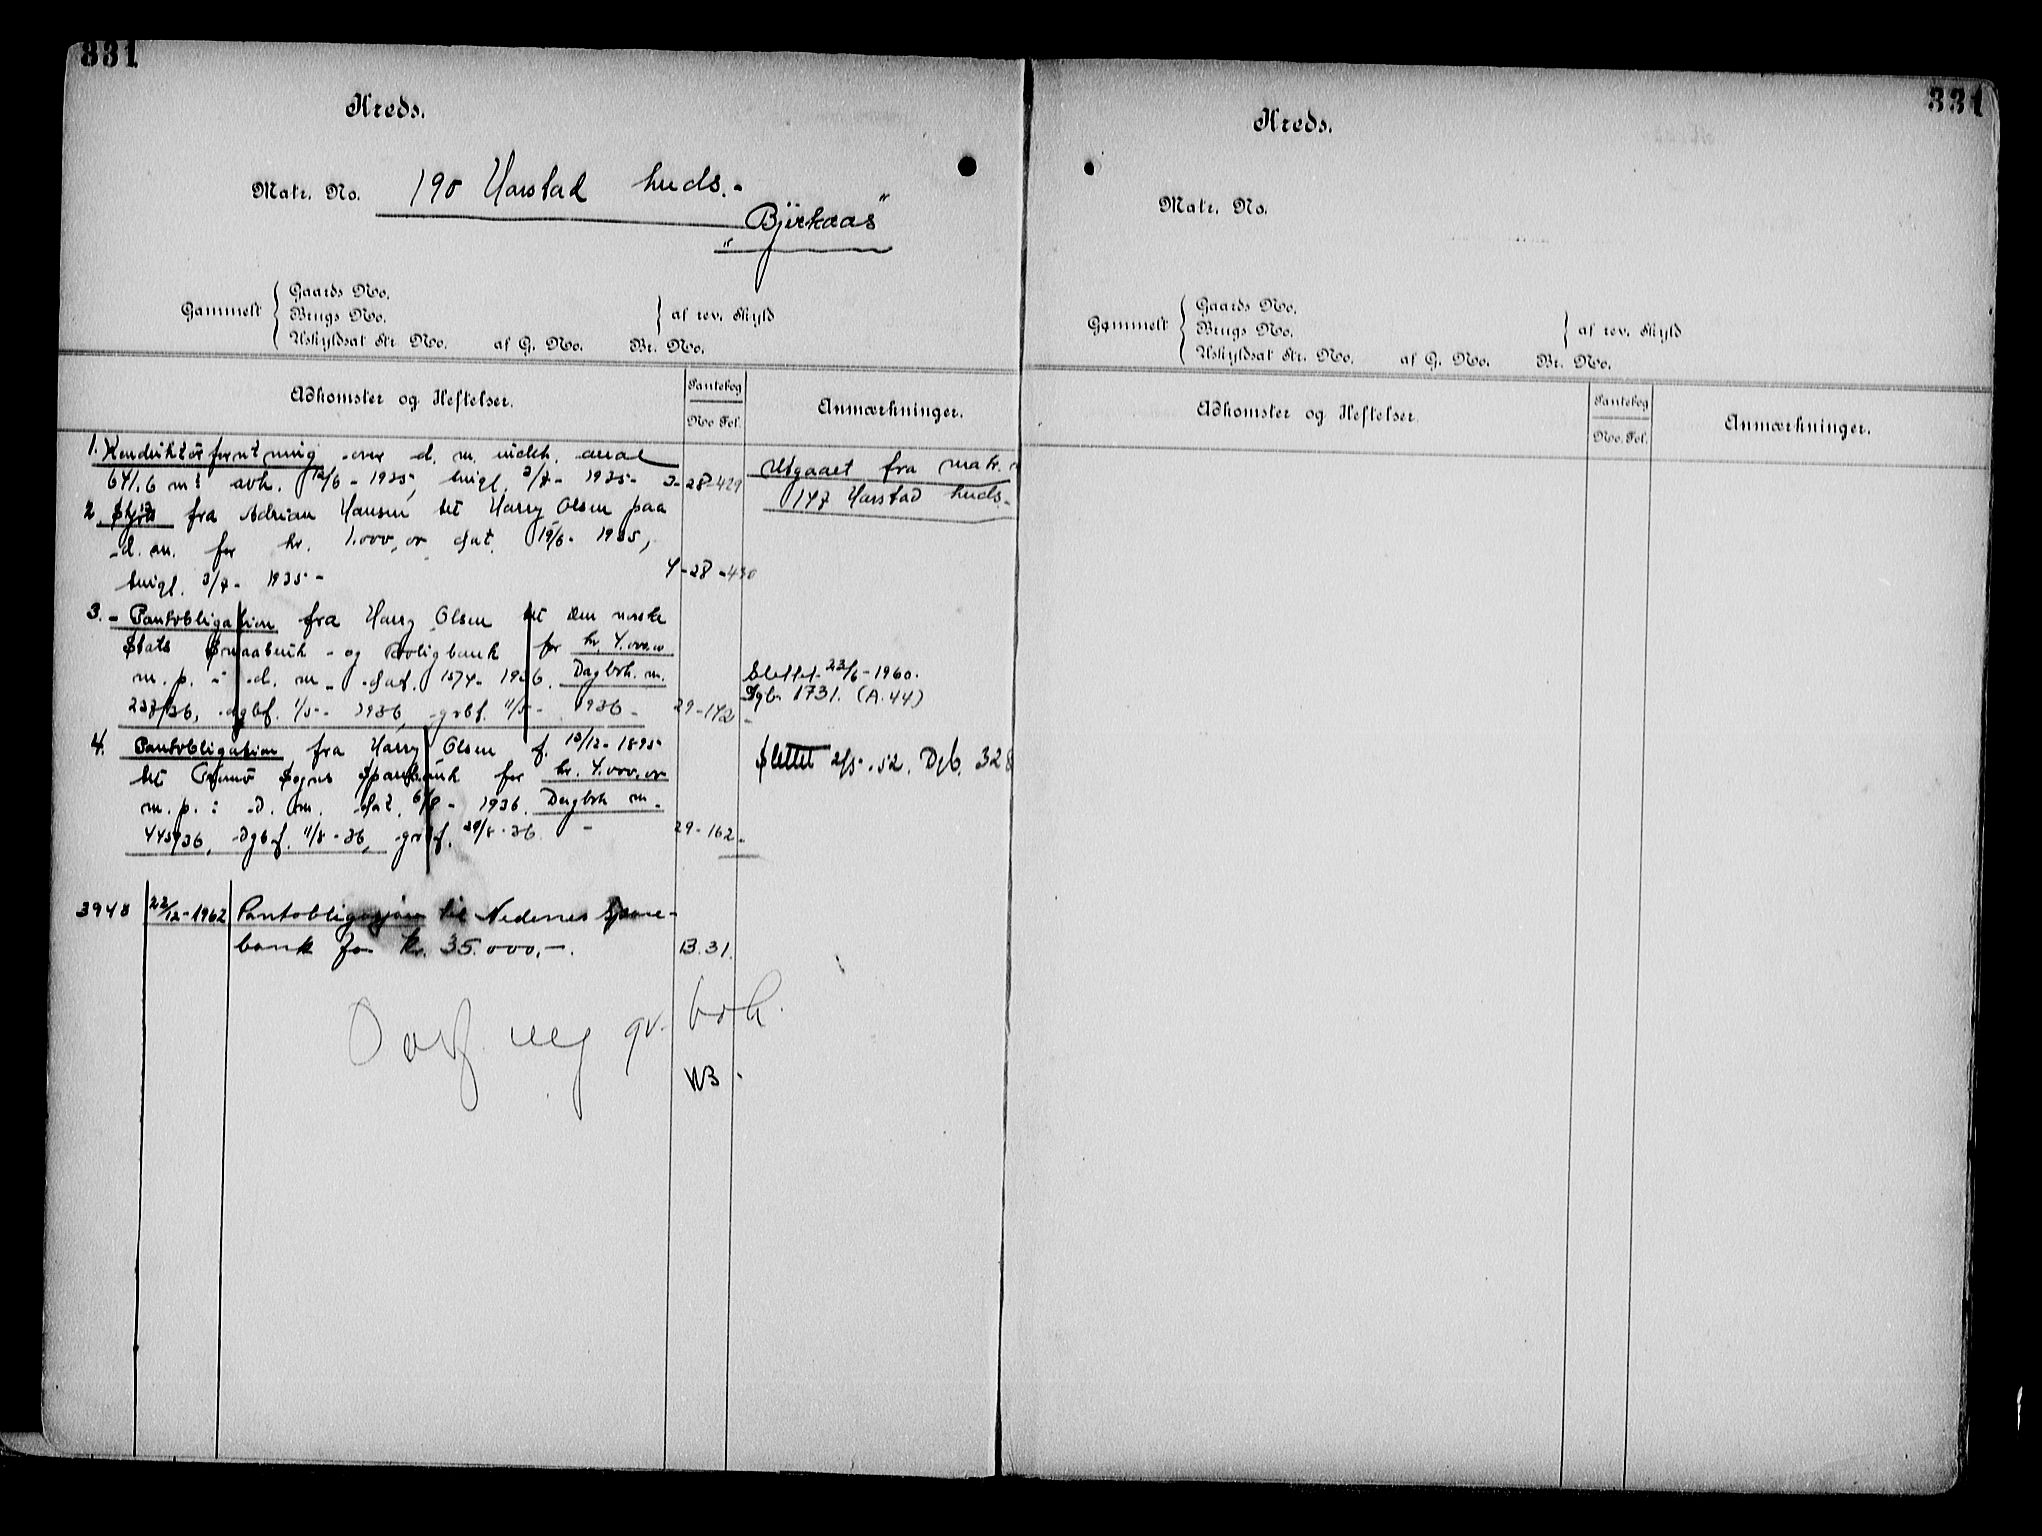 331
Kreds.
Matr. No. 190 Harstad huds.-
"Björkaas"
Gammelt
Gaards No.
Brugs No.
Uskyldsat Str. No. af G. No. Br. No.
af rev. Skyld
Adkomster og Heftelser.
Pantebog
No. Fol.
Anmærkninger.
1. forretning over d. m. areal
641.6 m² avh. 12/6 - 1935, tingl. 3/7 - 1935 - 3-28-429
Utgaaet fra matr.
147 Harstad huds.-
2 Skjöte fra Adrian Hansen til Harry Olsen paa
d. m. for kr. 1.000,00 dat. 19/6 - 1935,
tingl. 3/7 - 1935 - 4-28-430
3. - Pantobligation fra Harry Olsen til Den norske
Stats Smaabruk - og Boligbank for kr. 4.000,00
m. p. i d. m. dat. 15/4 - 1936. Dagbok nr.
237/36, dgbf. 1/5 - 1936, grbf. 11/5 - 1936 - 29-142-
Slettet 23/6-1960.
Dgb. 1731. (A.44)
4. Pantobligation fra Harry Olsen f. 13/12-1895
til Sogns Sparebank for kr. 4.000,00
m. p. i d. m. dat. 6/8 - 1936. Dagbok nr.
445/36, dgbf. 11/8-36, grbf. 29/8-36. - 29-162-
Slettet 2/5.52. Dgb. 328
3948 22/12-1962 Pantobligasjon til Nedenes Spare-
bank for kr. 35.000,-. B.31.
bok.
NB
331
Kreds.
Matr. No.
Gammelt
Gaards No.
Brugs No.
Uskyldsat Str. No. af G. No. Br. No.
af rev. Skyld
Adkomster og Heftelser.
Pantebog
No. Fol.
Anmærkninger.